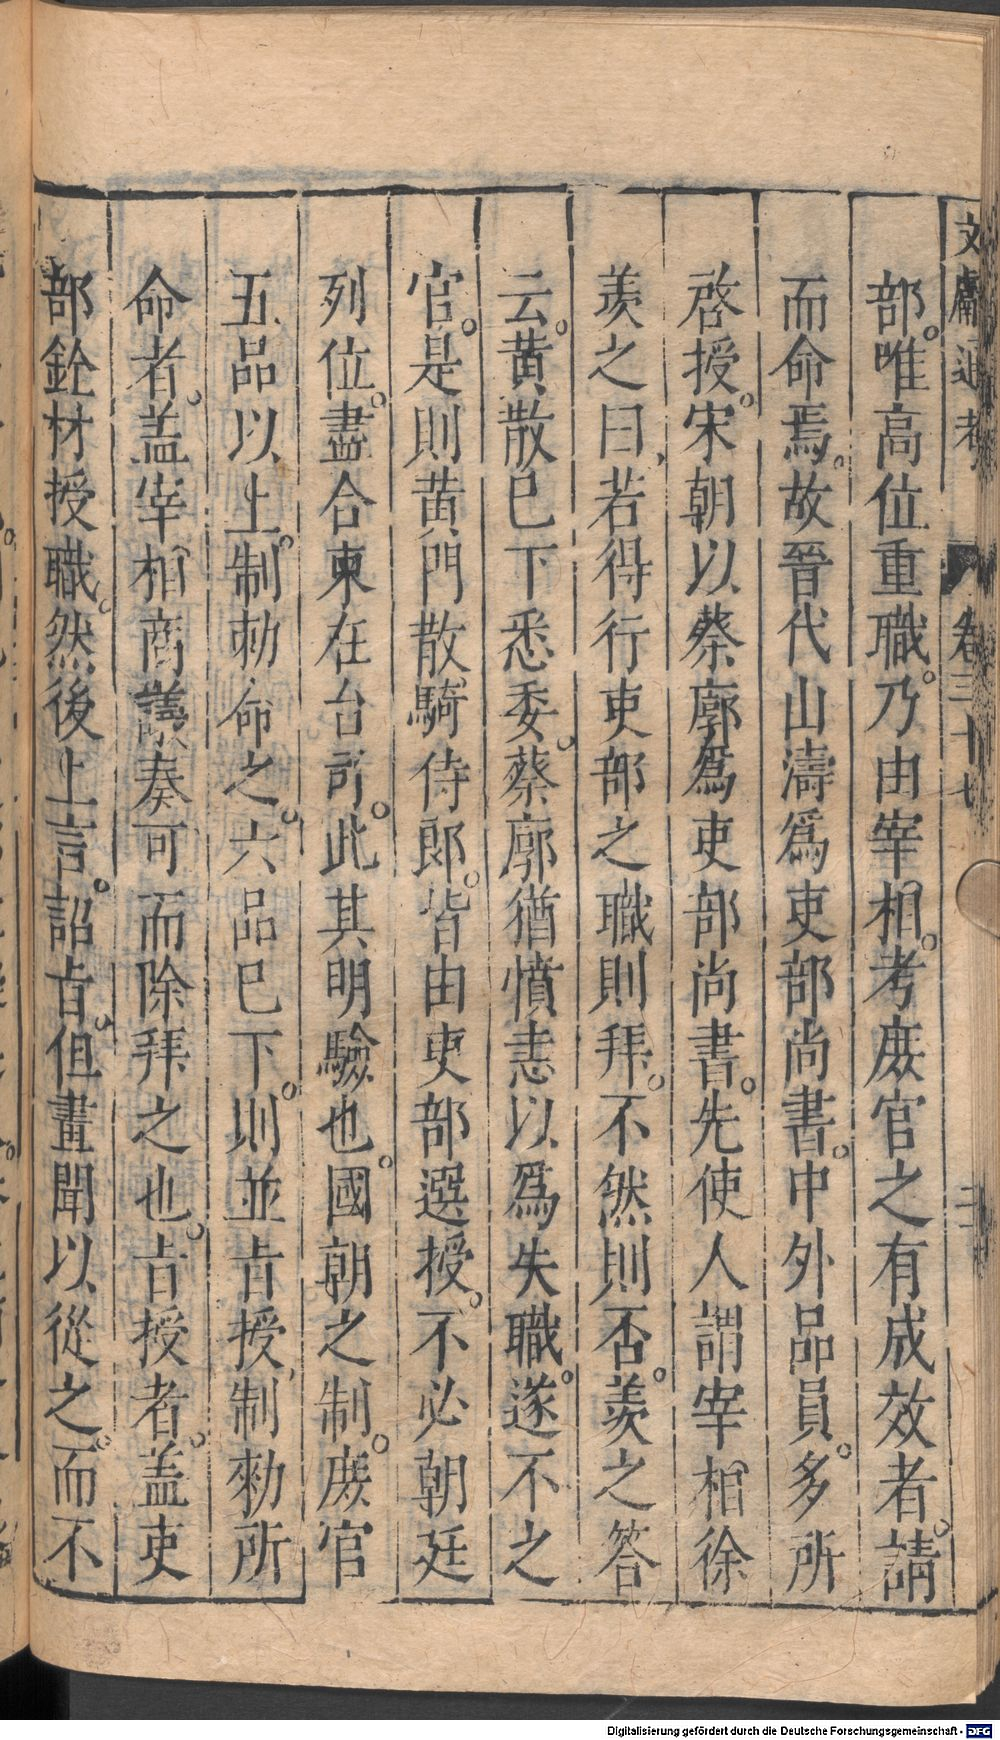 文獻通考 卷三十七 二
部。唯高位重職。乃由宰相。考庻官之有成效者。請
而命焉。故晉代山濤爲吏部尚書。中外品員。多所
啓授。宋朝以蔡廓爲吏部尚書。先使人謂宰相徐
羨之曰、若得行吏部之職則拜。不然則否。羨之答
云。黄散已下悉委。蔡廓猶憤恚以爲失職。遂不之
官。是則黄門散騎侍郎。皆由吏部選授。不必朝廷
列位。盡合東在台司。此其明驗也。國朝之制。庻官
五品以上。制勅命之。六品已下。則並㫖授、制勑所
命者。盖宰相商議奏可而除拜之也。㫖授者。盖吏
部銓材授職。然後上言。詔㫖。但畫聞以從之。而不
Digitalisierung gefördert durch die Deutsche Forschungsgemeinschaft - DFG